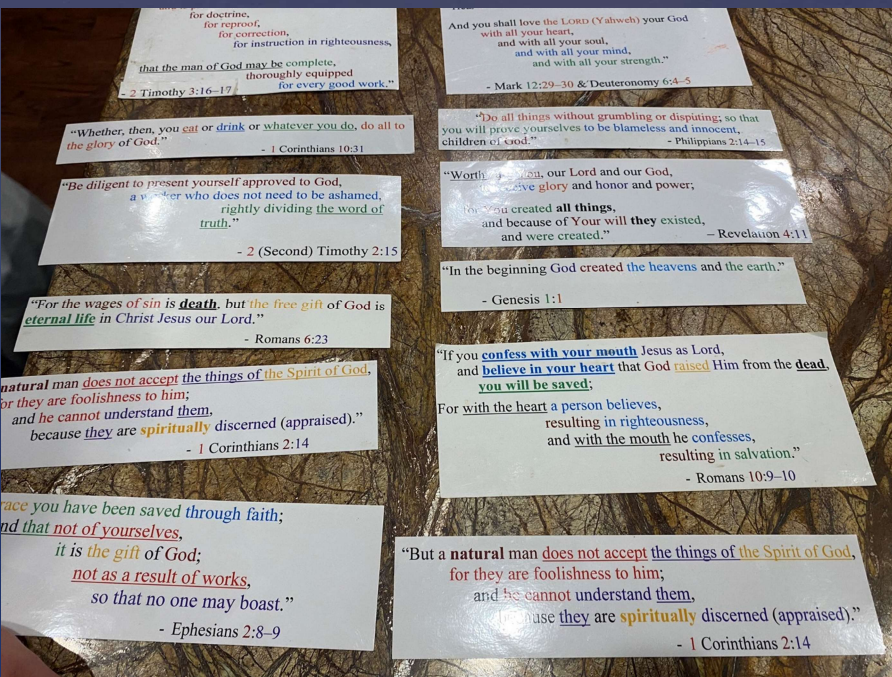 for doctrine,
for reproof,
for correction,
for instruction in righteousness,
that the man of God may be complete,
thoroughly equipped
for every good work.”
- 2 Timothy 3:16–17
“Whether, then, you eat or drink or whatever you do, do all to
the glory of God.”
- 1 Corinthians 10:31
“Be diligent to present yourself approved to God,
a worker who does not need to be ashamed,
rightly dividing the word of
truth.”
- 2 (Second) Timothy 2:15
“For the wages of sin is death, but the free gift of God is
eternal life in Christ Jesus our Lord.”
- Romans 6:23
natural man does not accept the things of the Spirit of God,
for they are foolishness to him;
and he cannot understand them,
because they are spiritually discerned (appraised).”
- 1 Corinthians 2:14
you have been saved through faith;
and that not of yourselves,
it is the gift of God;
not as a result of works,
so that no one may boast.”
- Ephesians 2:8–9
And you shall love the LORD (Yahweh) your God
with all your heart,
and with all your soul,
and with all your mind,
and with all your strength.”
- Mark 12:29–30 & Deuteronomy 6:4–5
“Do all things without grumbling or disputing; so that
you will prove yourselves to be blameless and innocent,
children of God.”
- Philippians 2:14–15
our Lord and our God,
glory and honor and power;
You created all things,
and because of Your will they existed,
and were created.”
– Revelation 4:11
“In the beginning God created the heavens and the earth.”
- Genesis 1:1
“If you confess with your mouth Jesus as Lord,
and believe in your heart that God raised Him from the dead,
you will be saved;
For with the heart a person believes,
resulting in righteousness,
and with the mouth he confesses,
resulting in salvation.”
- Romans 10:9–10
“But a natural man does not accept the things of the Spirit of God,
for they are foolishness to him;
and he cannot understand them,
because they are spiritually discerned (appraised).”
- 1 Corinthians 2:14